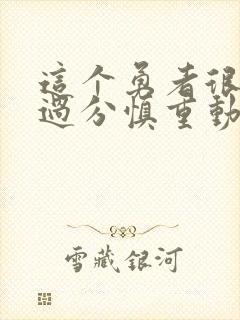 這个勇者很
過分慎重動
雪藏銀河